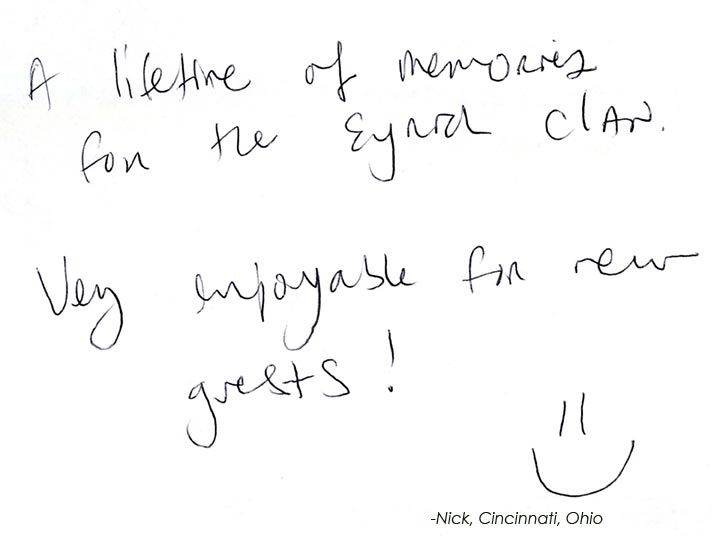 A lifetime of memories
for the Eynich clan.
Very enjoyable for new
guests!
-Nick, Cincinnati, Ohio